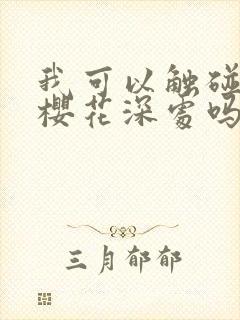 我可以触碰
樱花深处吗
三月郁郁